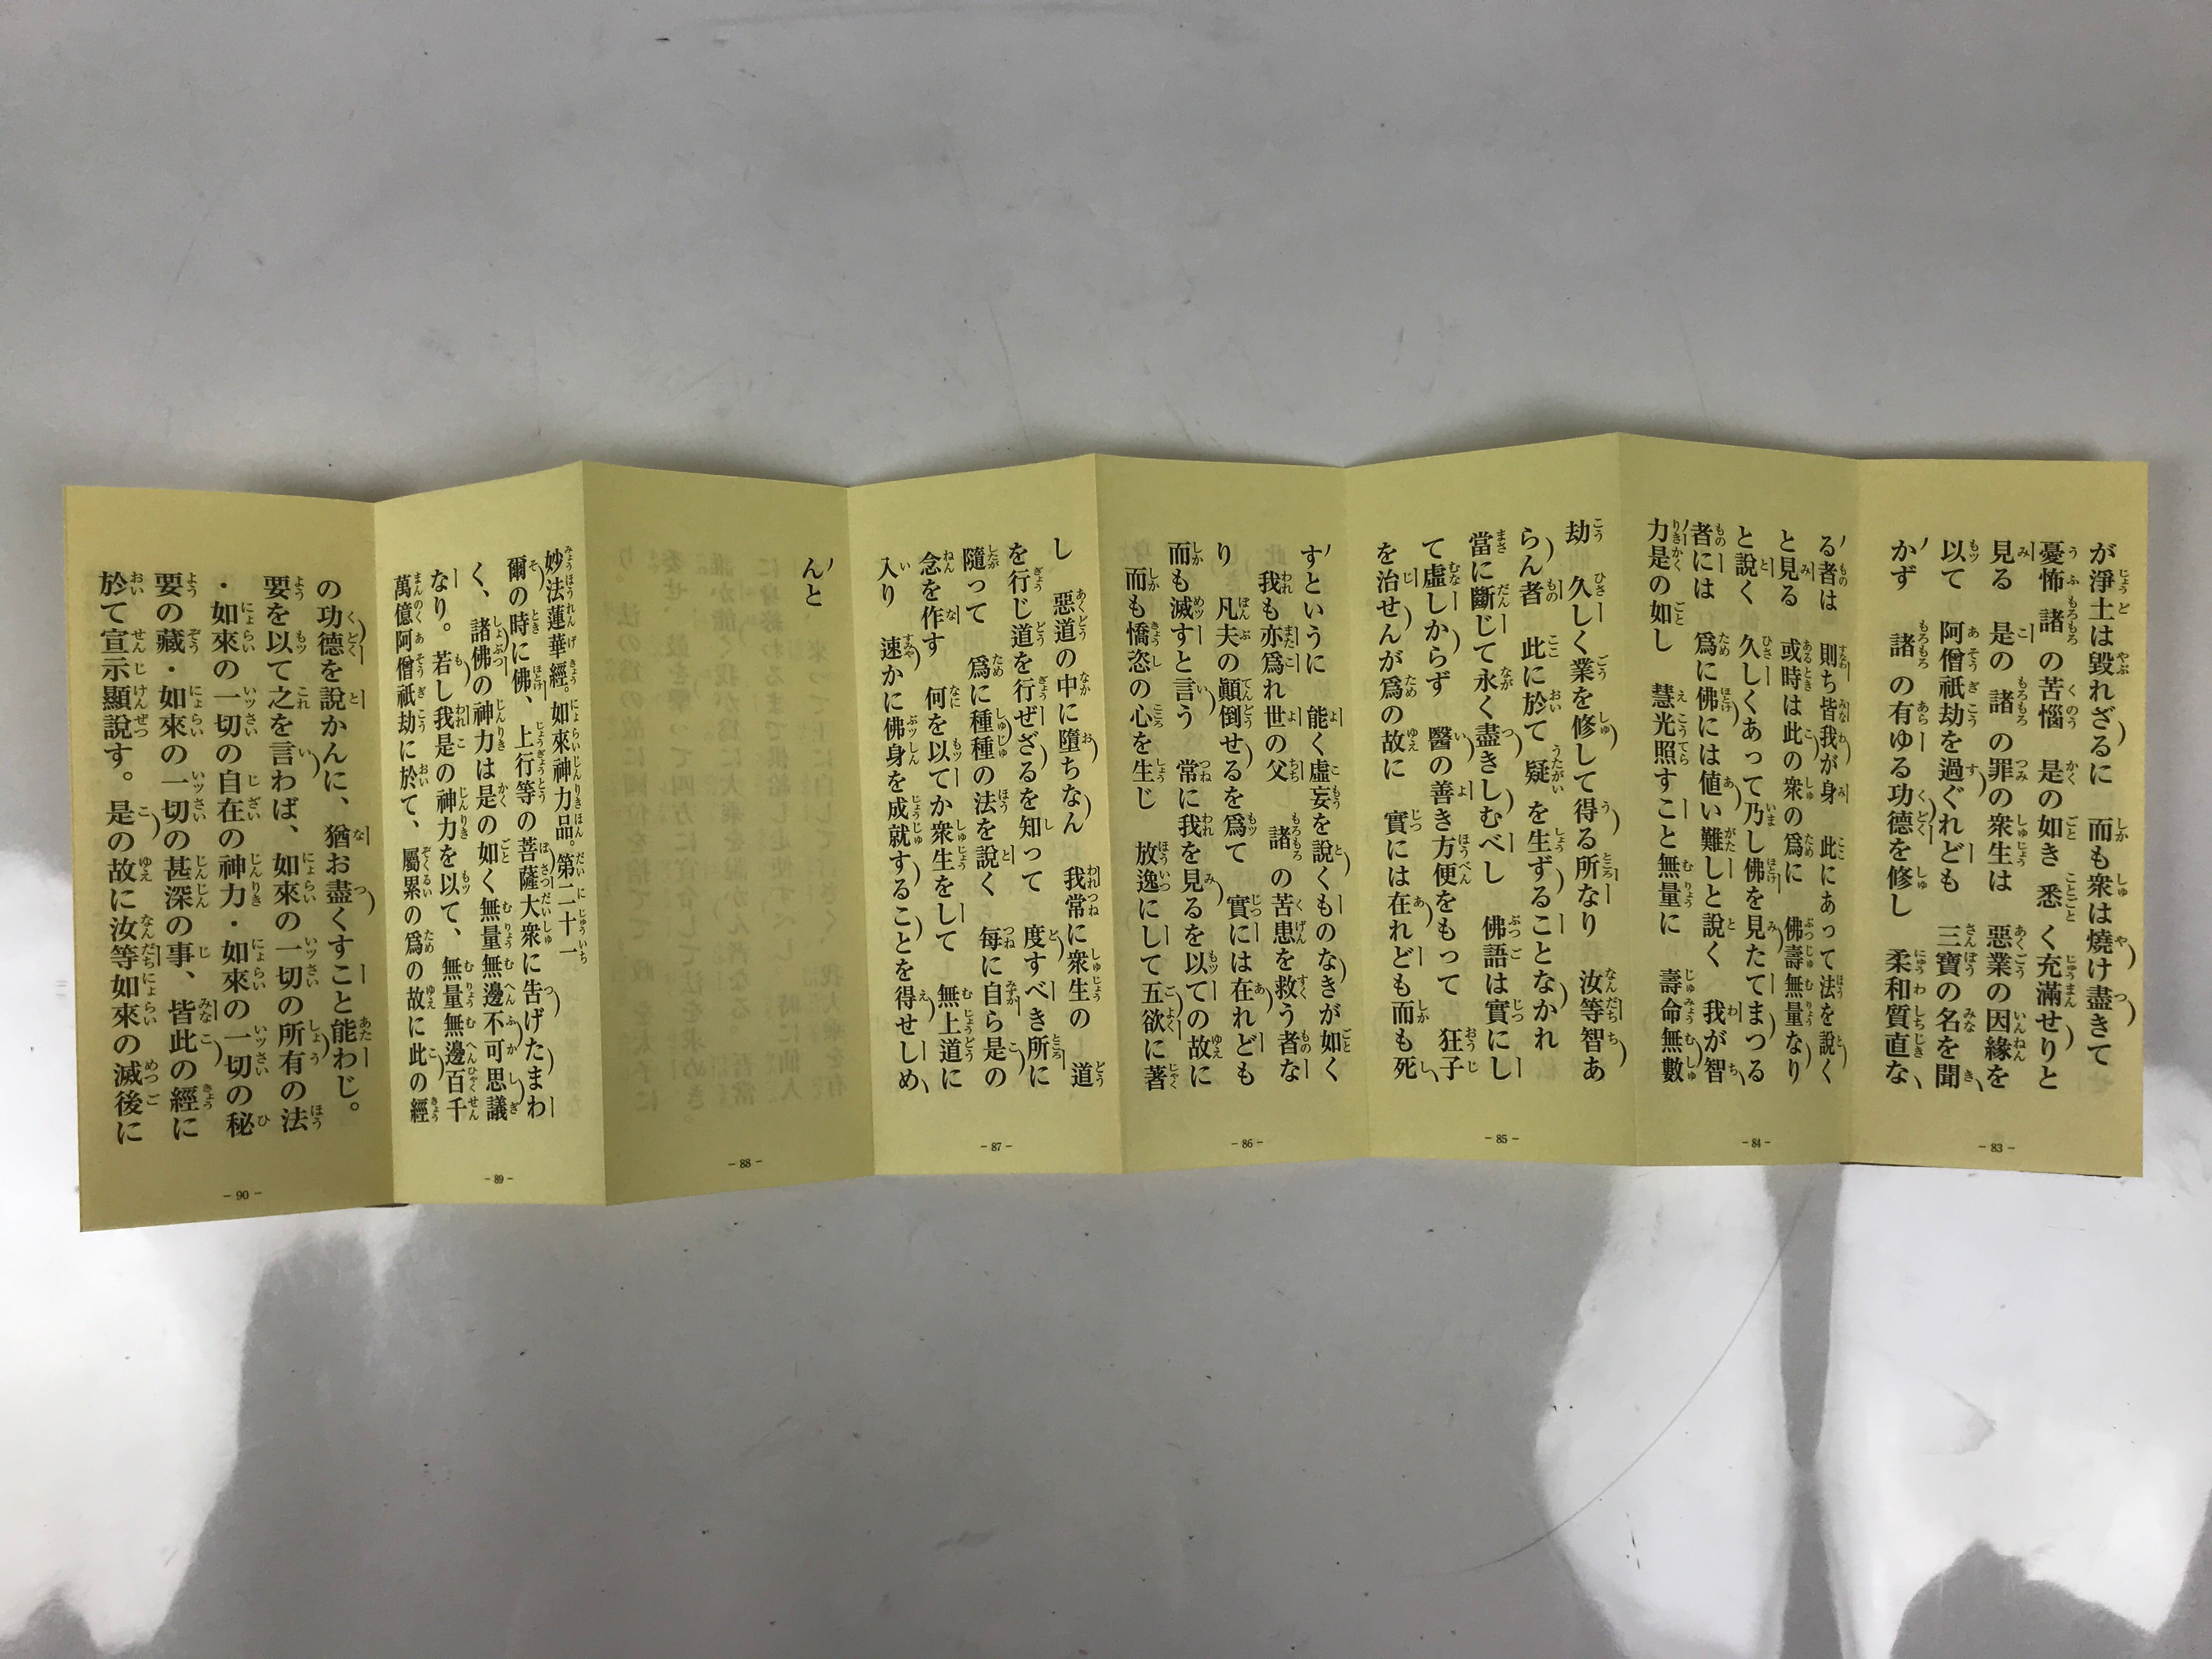 が淨土は毀れざるに　而も衆は燒け盡きて
憂怖　諸の苦惱　是の如き悉く充滿せりと
見る　是の諸の罪の衆生は　惡業の因緣を
以て　阿僧祇劫を過ぐれども　三寶の名を聞
かず　諸の有ゆる功德を修し　柔和質直な
- 83 -
る者は　則ち皆我が身　此にあって法を說く
と見る　或時は此の衆の爲に　佛壽無量なり
と說く　久しくあって乃し佛を見たてまつる
者には　爲に佛には値い難しと說く　我が智
力是の如し　慧光照すこと無量に　壽命無數
- 84 -
劫　久しく業を修して得る所なり　汝等智あ
らん者　此に於て疑を生ずることなかれ
當に斷じて永く盡きしむべし　佛語は實にし
て虛しからず　醫の善き方便をもって　狂子
を治せんが爲の故に　實には在れども而も死
- 85 -
すというに　能く虛妄を說くものなきが如く
我も亦爲れ世の父　諸の苦患を救う者な
り　凡夫の顚倒せるを爲て　實には在れども
而も滅すと言う　常に我を見るを以ての故に
而も憍恣の心を生じ　放逸にして五欲に著
- 86 -
し　惡道の中に墮ちなん　我常に衆生の　道
を行じ道を行ぜざるを知って　度すべき所に
隨って　爲に種種の法を說く　每に自ら是の
念を作す　何を以てか衆生をして　無上道に
入り　速かに佛身を成就することを得せしめ
- 87 -
んと
- 88 -
妙法蓮華經。如來神力品。第二十一
爾の時に佛、上行等の菩薩大衆に告げたまわ
く、諸佛の神力は是の如く無量無邊不可思議
なり。若し我是の神力を以て、無量無邊百千
萬億阿僧祇劫に於て、屬累の爲の故に此の經
- 89 -
の功德を說かんに、猶お盡くすこと能わじ。
要を以て之を言わば、如來の一切の所有の法
・如來の一切の自在の神力・如來の一切の秘
要の藏・如來の一切の甚深の事、皆此の經に
於て宣示顯說す。是の故に汝等如來の滅後に
- 90 -